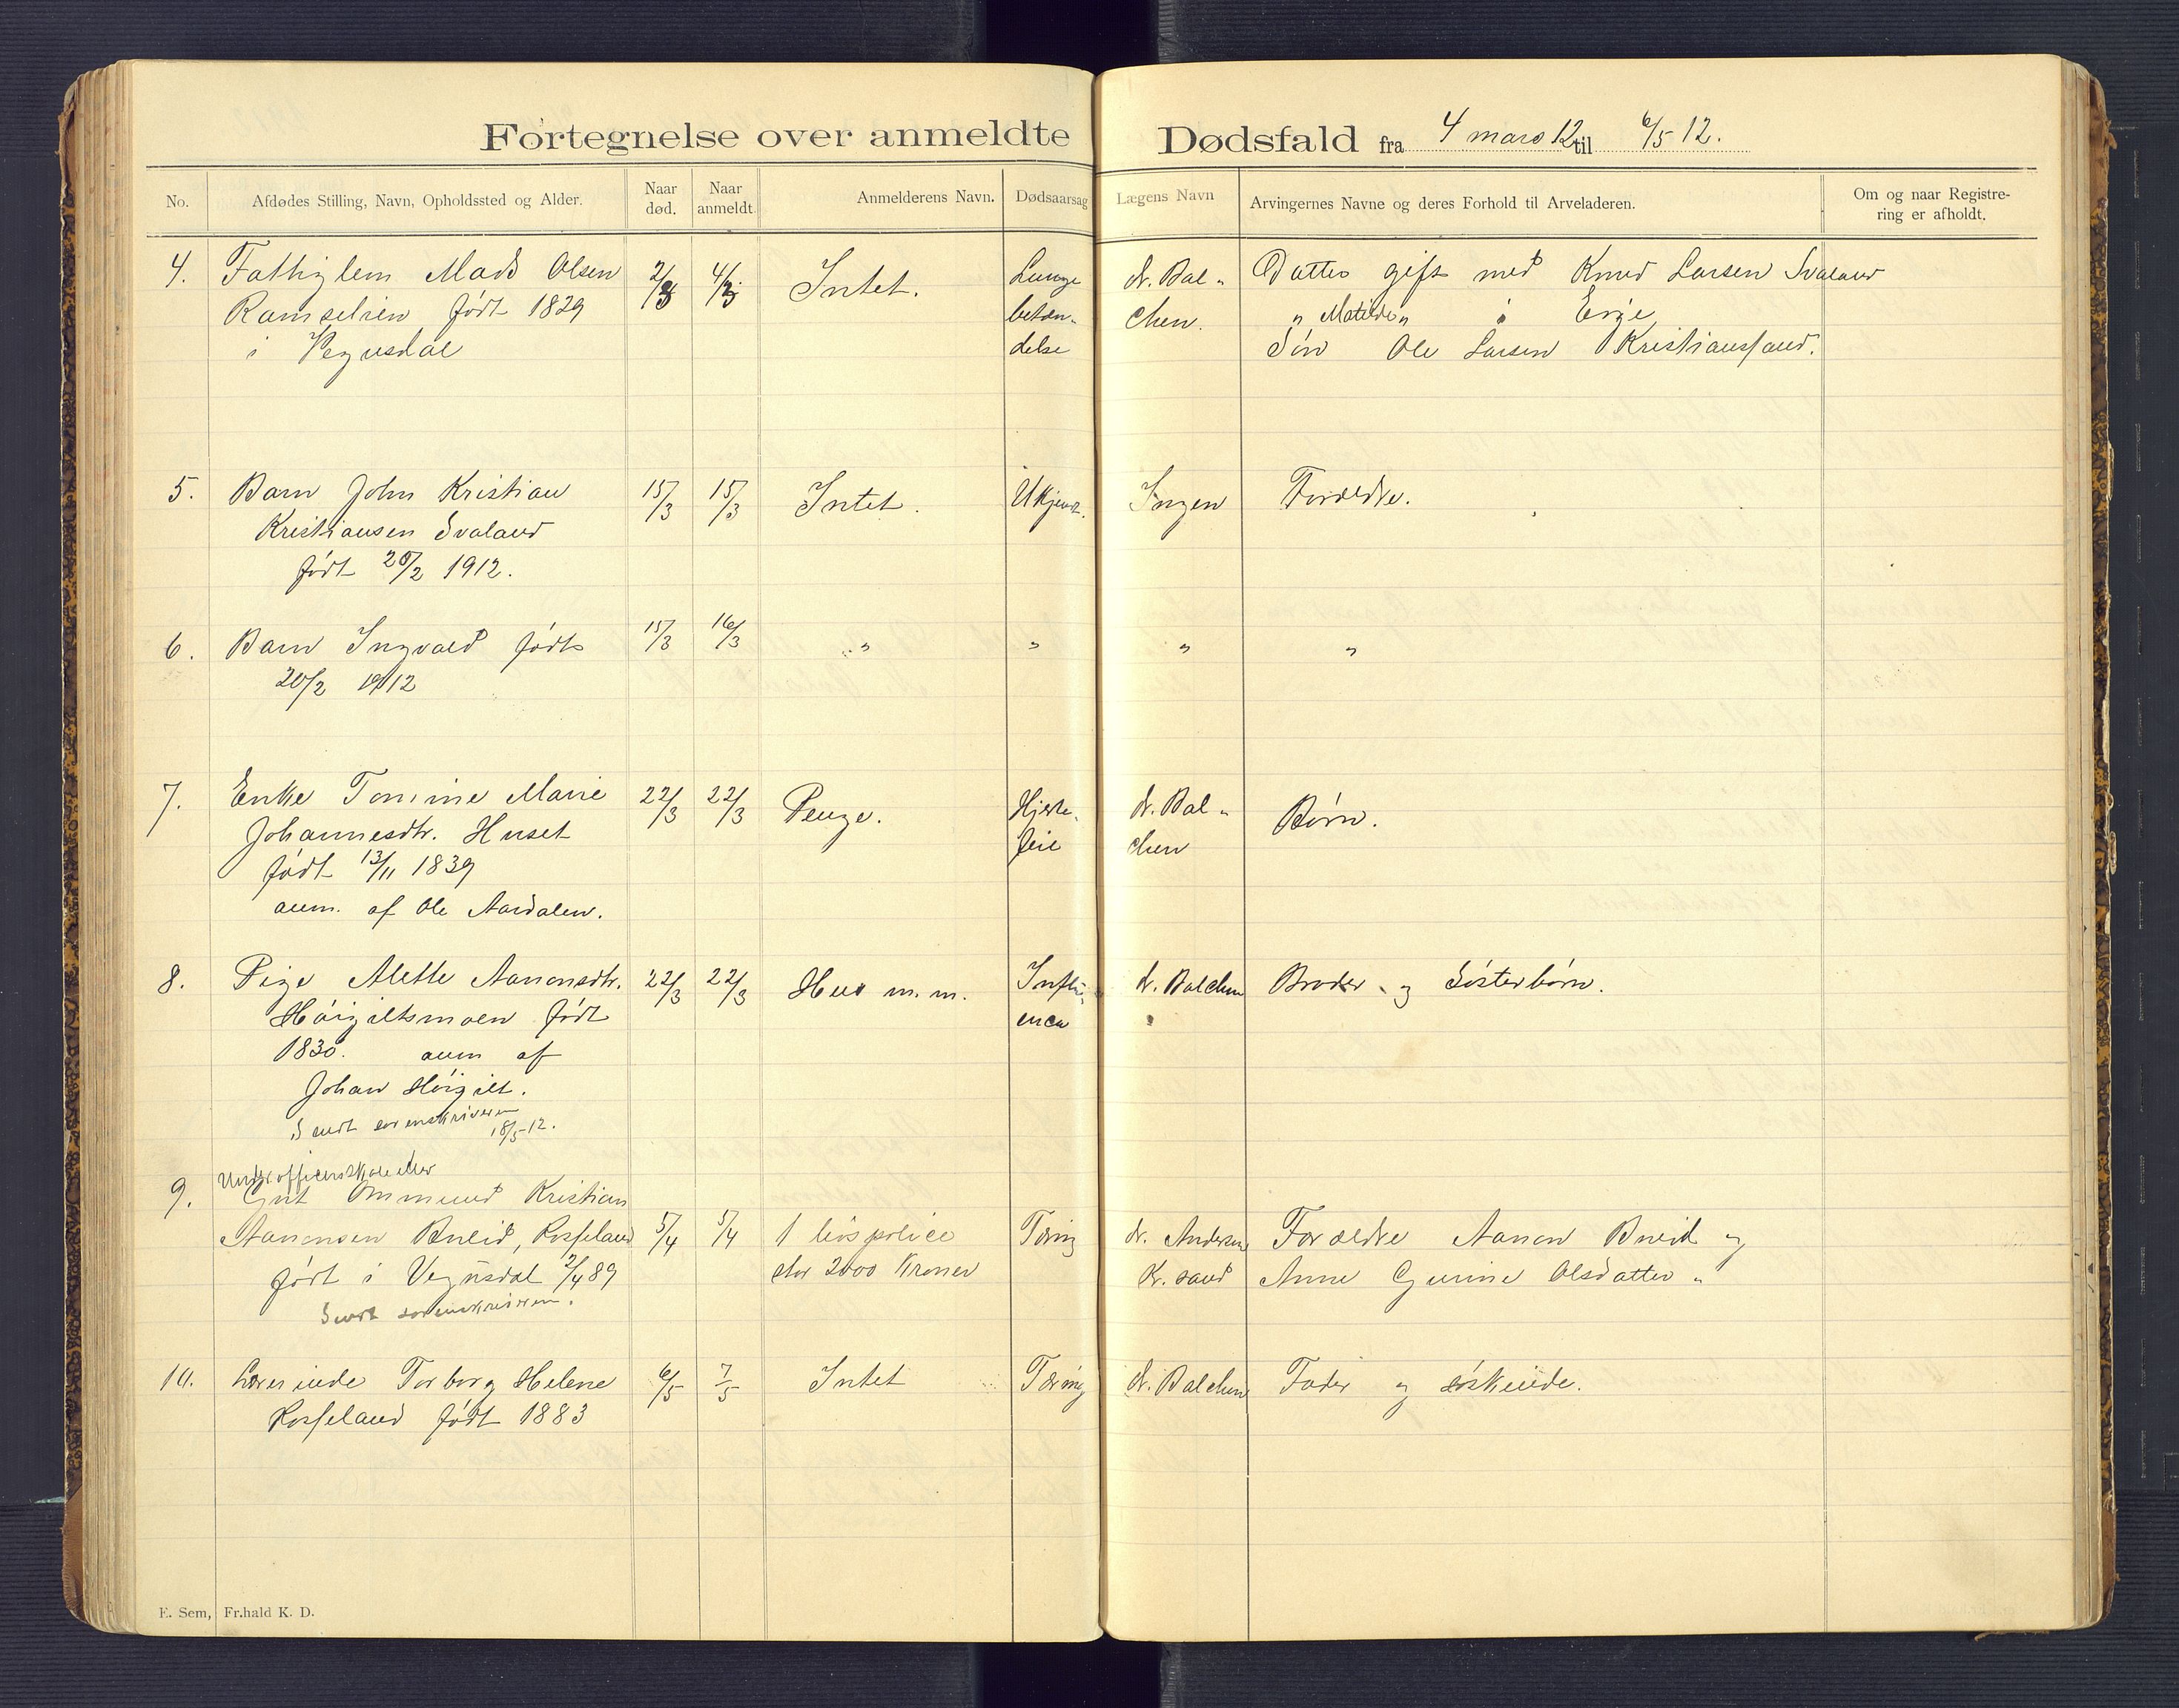 Fortegnelse over anmeldte Dødsfald fra 4 mars 12 til 6/5 12.
No. Afdødes Stilling, Navn, Opholdssted og Alder. Naar død. Naar anmeldt. Anmelderens Navn. Dødsaarsag Lægens Navn Arvingernes Navne og deres Forhold til Arveladeren. Om og naar Registrering er afholdt.
4. Fattiglem Mads Olsen 2/3 4/3 Intet. Lunge dr. Bal- Datter gift med Knud Larsen Svaland
Ramselien født 1829 betæn- chen. " Matilde " i Evje
i Vegusdal delse Søn Ole Larsen Kristianssand.
5. Barn John Kristian 15/3 15/3 Intet. Ukjendt. Ingen Forældre.
Kristiansen Svaland
født 20/2 1912.
6. Barn Ingvald født 15/3 16/3 " " " "
20/2 1912
7. Enke Tomine Marie 22/3 22/3 Penge. Hjerte- dr. Bal- Børn.
Johannesdtr. Huset feil chen
født 13/11 1839
anm. af Ole Aardalen.
8. Pige Alette Aanonsdtr. 22/3 22/3 Hus m. m. Influ- dr. Balchen Broder og Søsterbørn.
Høigiltsmoen født enca "
1830. anm af
Johan Høigilt.
Sendt sorenskriveren
18/5-12.
Underofficerskoleelev
9. Gut Ommund Kristian
Aanonsen Bueid, Rosseland 5/4 5/4 1 livspolice Tæring dr. Andersen Forældre Aanon Bueid og
født i Vegusdal 2/4 89 stor 2000 Kroner Kr. sand Anne Gurine Olsdatter "
Sendt sorenskriveren.
10. Lærerinde Torborg Helene 6/5 7/5 Intet Tæring dr. Balchen Fader og søskende.
Rosseland født 1883
E. Sem, Fr.hald K. D.